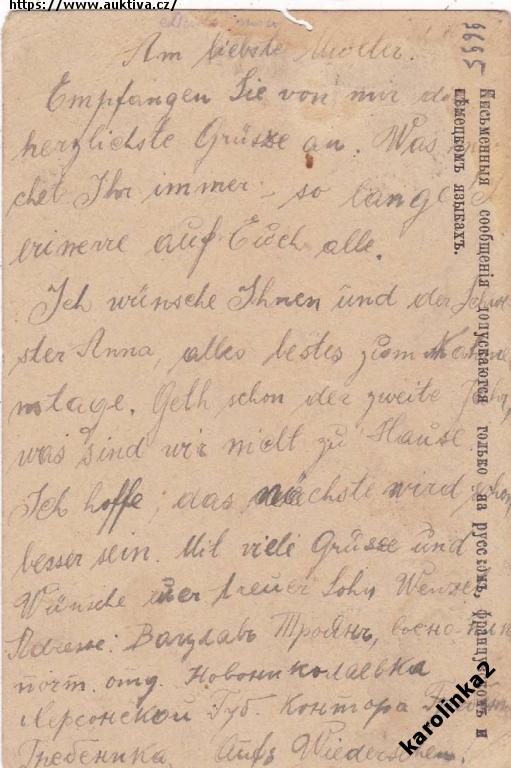 https://www.auktiva.cz/
Am liebste Mutter.
Empfangen Sie von mir
herzlichste Grüsze an. Was
chet Ihr immer - so lange
erinerre auf Euch alle.
Ich wünsche Ihnen und der Schwe
ster Anna, alles bestes zum Nahme
nstage. Geth schon der zweite Jahr,
was sind wir nicht zu Hause.
Ich hoffe, das nächste wird schon
besser sein. Mit viele Grüsze und
Wünsche Euer treuer Sohn Wenzel
Adresse: Вацлавъ Троянъ, военно-плн
почт. отд. Новониколаевка
Херсонской Губ. Контора
Гребеника. Aufs Wiedersehen!
Письменныя сообщенія допускаются только на русскомъ, французскомъ и
нѣмецкомъ языкахъ.
5695
karolinka2